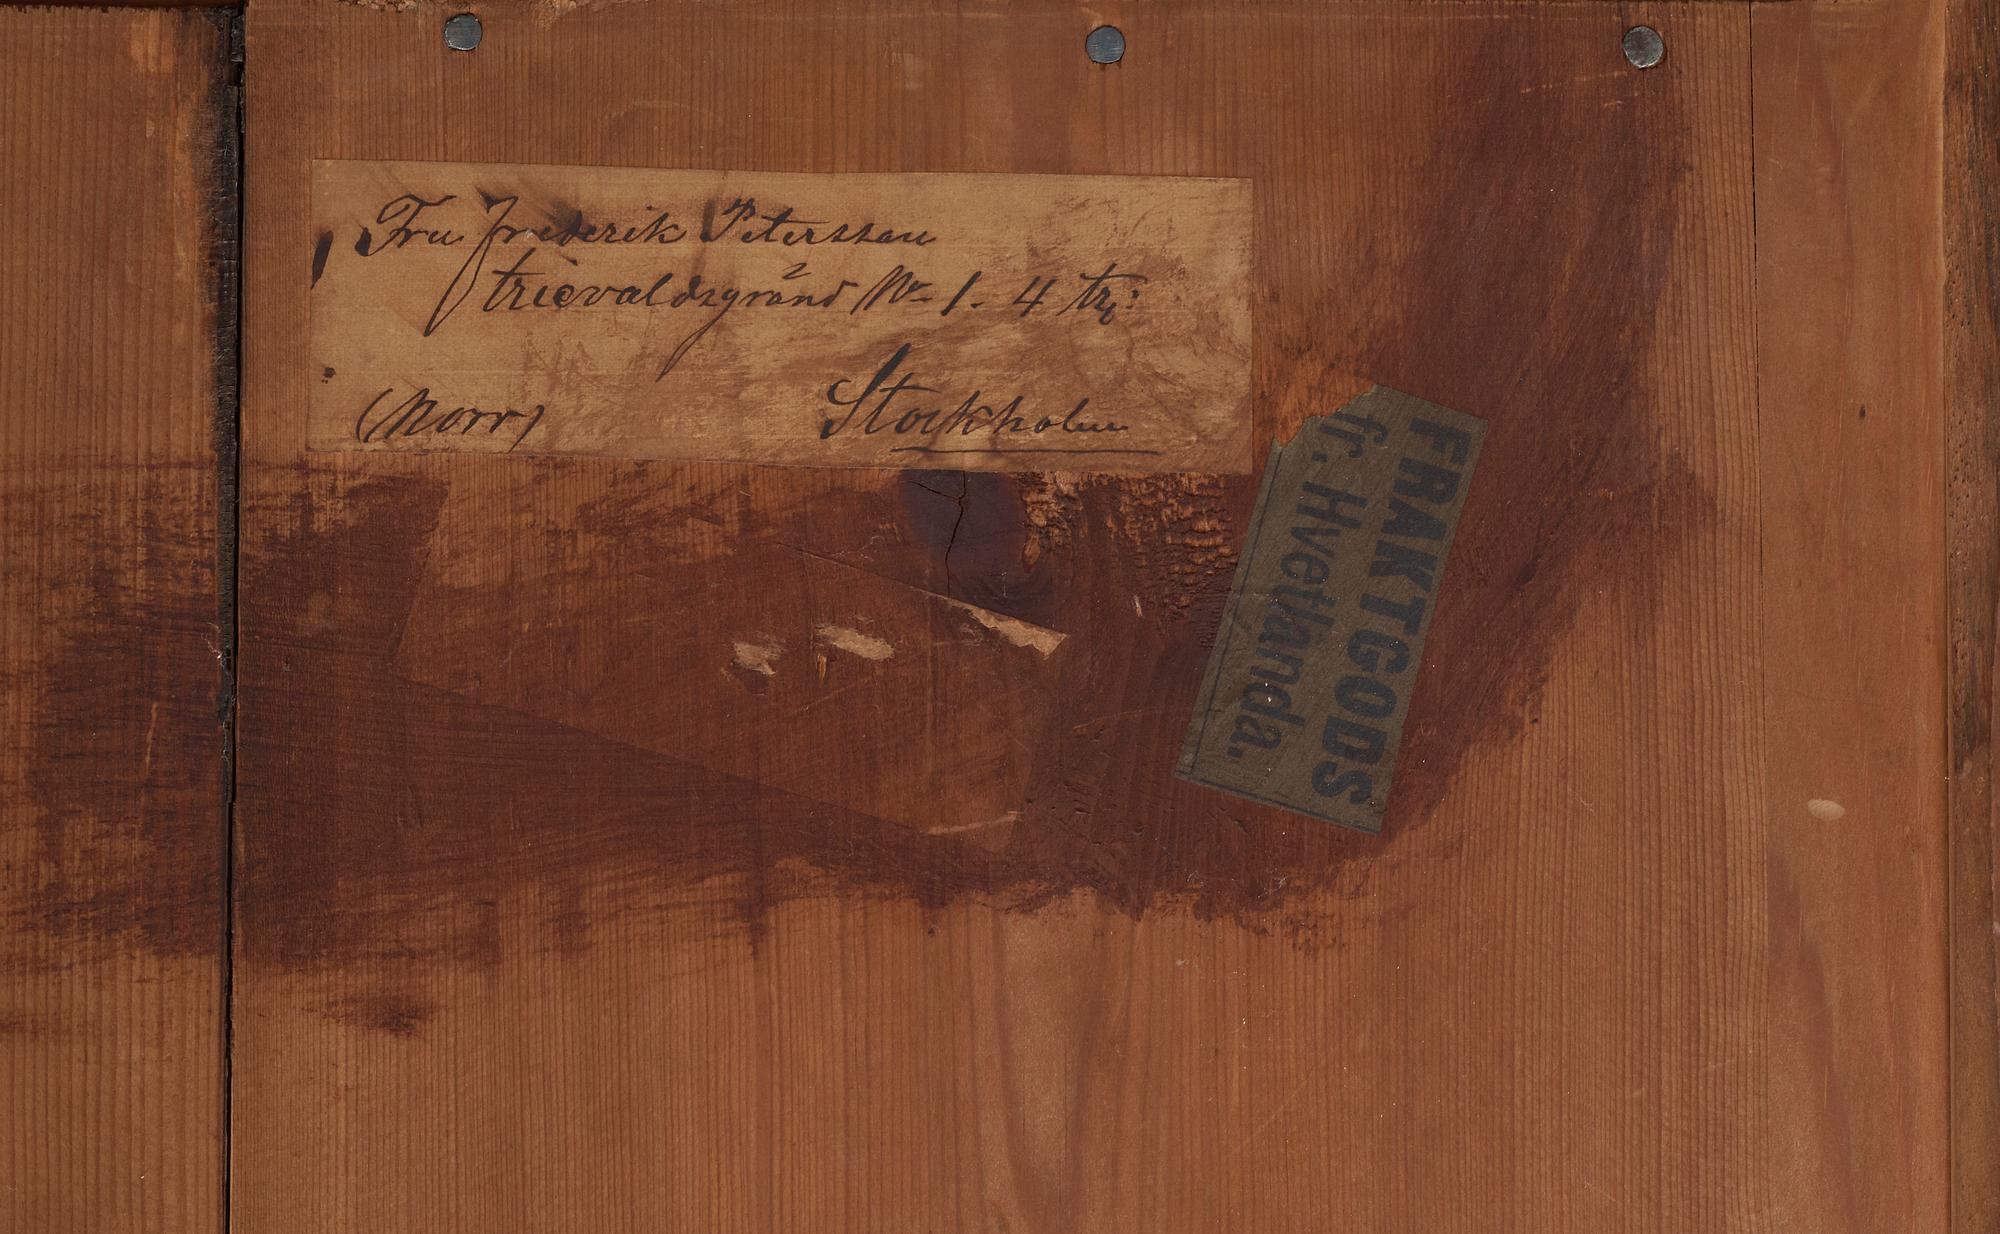 Fru Frederik Petersson
trievaldsgränd No 1. 4 tr:
(Norr) Stockholm
FRAKTGODS
fr. Hvetlanda.